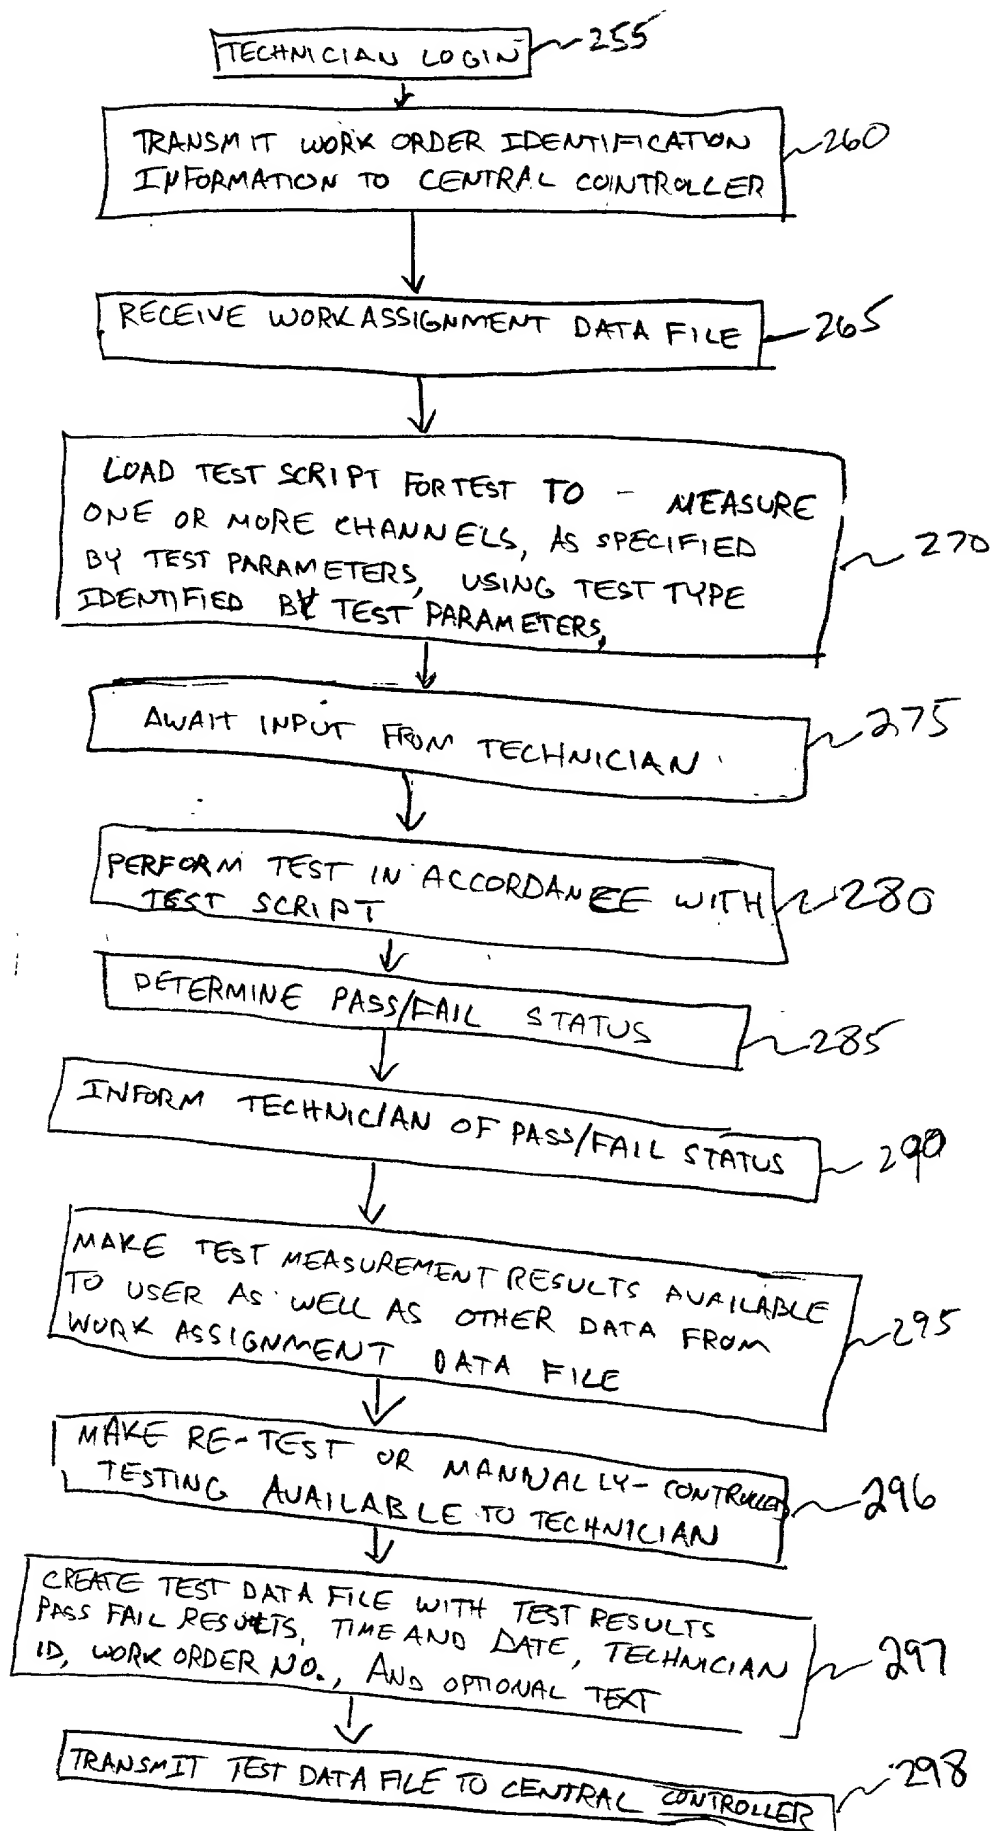 TECHNICIAN LOGIN
255
TRANSMIT WORK ORDER IDENTIFICATION
INFORMATION TO CENTRAL CONTROLLER
260
RECEIVE WORK ASSIGNMENT DATA FILE
265
LOAD TEST SCRIPT FOR TEST TO - MEASURE
ONE OR MORE CHANNELS, AS SPECIFIED
BY TEST PARAMETERS, USING TEST TYPE
IDENTIFIED BY TEST PARAMETERS,
270
AWAIT INPUT FROM TECHNICIAN
275
PERFORM TEST IN ACCORDANCE WITH
TEST SCRIPT
280
DETERMINE PASS/FAIL STATUS
285
INFORM TECHNICIAN OF PASS/FAIL STATUS
290
MAKE TEST MEASUREMENT RESULTS AVAILABLE
TO USER AS WELL AS OTHER DATA FROM
WORK ASSIGNMENT DATA FILE
295
MAKE RE-TEST OR MANUALLY-CONTROLLED
TESTING AVAILABLE TO TECHNICIAN
296
CREATE TEST DATA FILE WITH TEST RESULTS
PASS FAIL RESULTS, TIME AND DATE, TECHNICIAN
ID, WORK ORDER NO., AND OPTIONAL TEXT
297
TRANSMIT TEST DATA FILE TO CENTRAL CONTROLLER
298